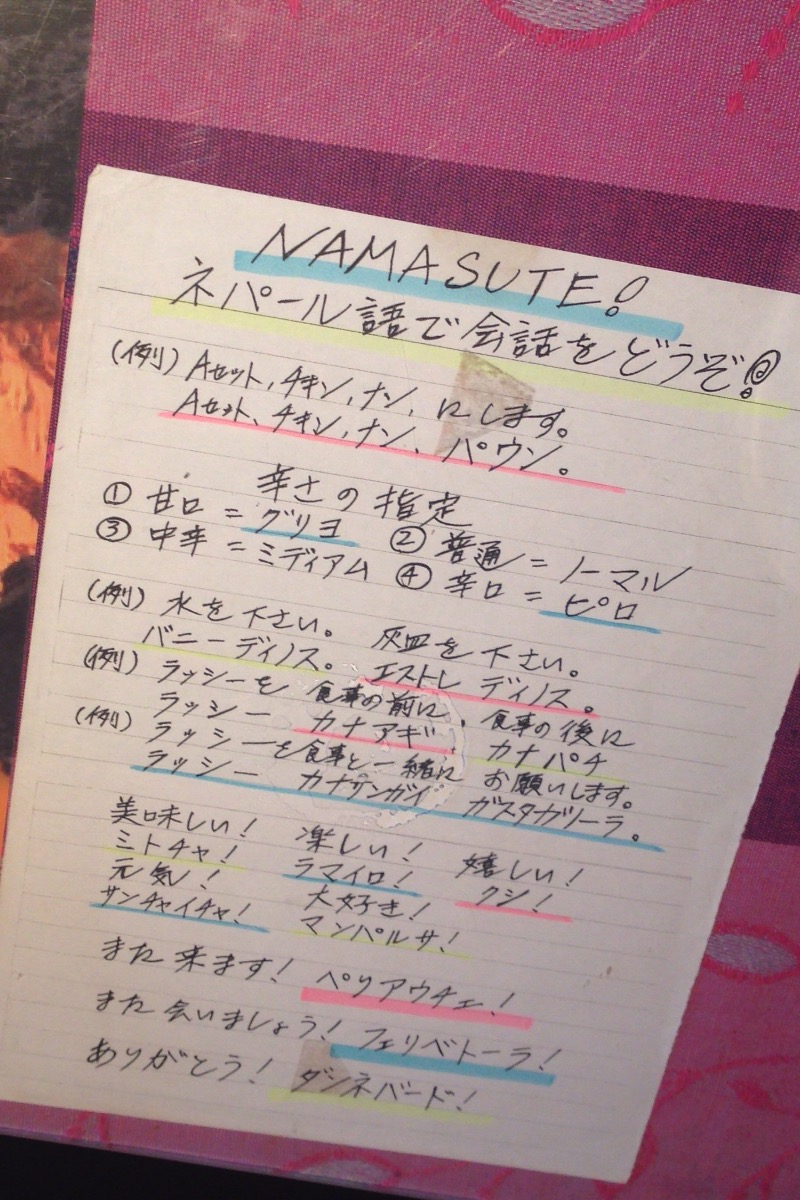 NAMASUTE!
ネパール語で会話をどうぞ!
(例) Aセット、チキン、ナン、にします。
Aセット、チキン、ナン、パウン。
辛さの指定
① 甘口 = グリヨ ② 普通 = ノーマル
③ 中辛 = ミディアム ④ 辛口 = ピロ
(例) 水を下さい。 灰皿を下さい。
バニーディノス。 エストレ ディノス。
(例) ラッシーを 食事の前に、食事の後に
ラッシー カナアギ、カナパチ
(例) ラッシーを食事と一緒に お願いします。
ラッシー カナサンガイ ガスタガリーラ。
美味しい! 楽しい! 嬉しい!
ミトチャ! ラマイロ! クシ!
元気! 大好き!
サンチャイチャ! マンパルサ!
また来ます! ペリアウチェ!
また会いましょう! フェリベトーラ!
ありがとう! ダンネバード!